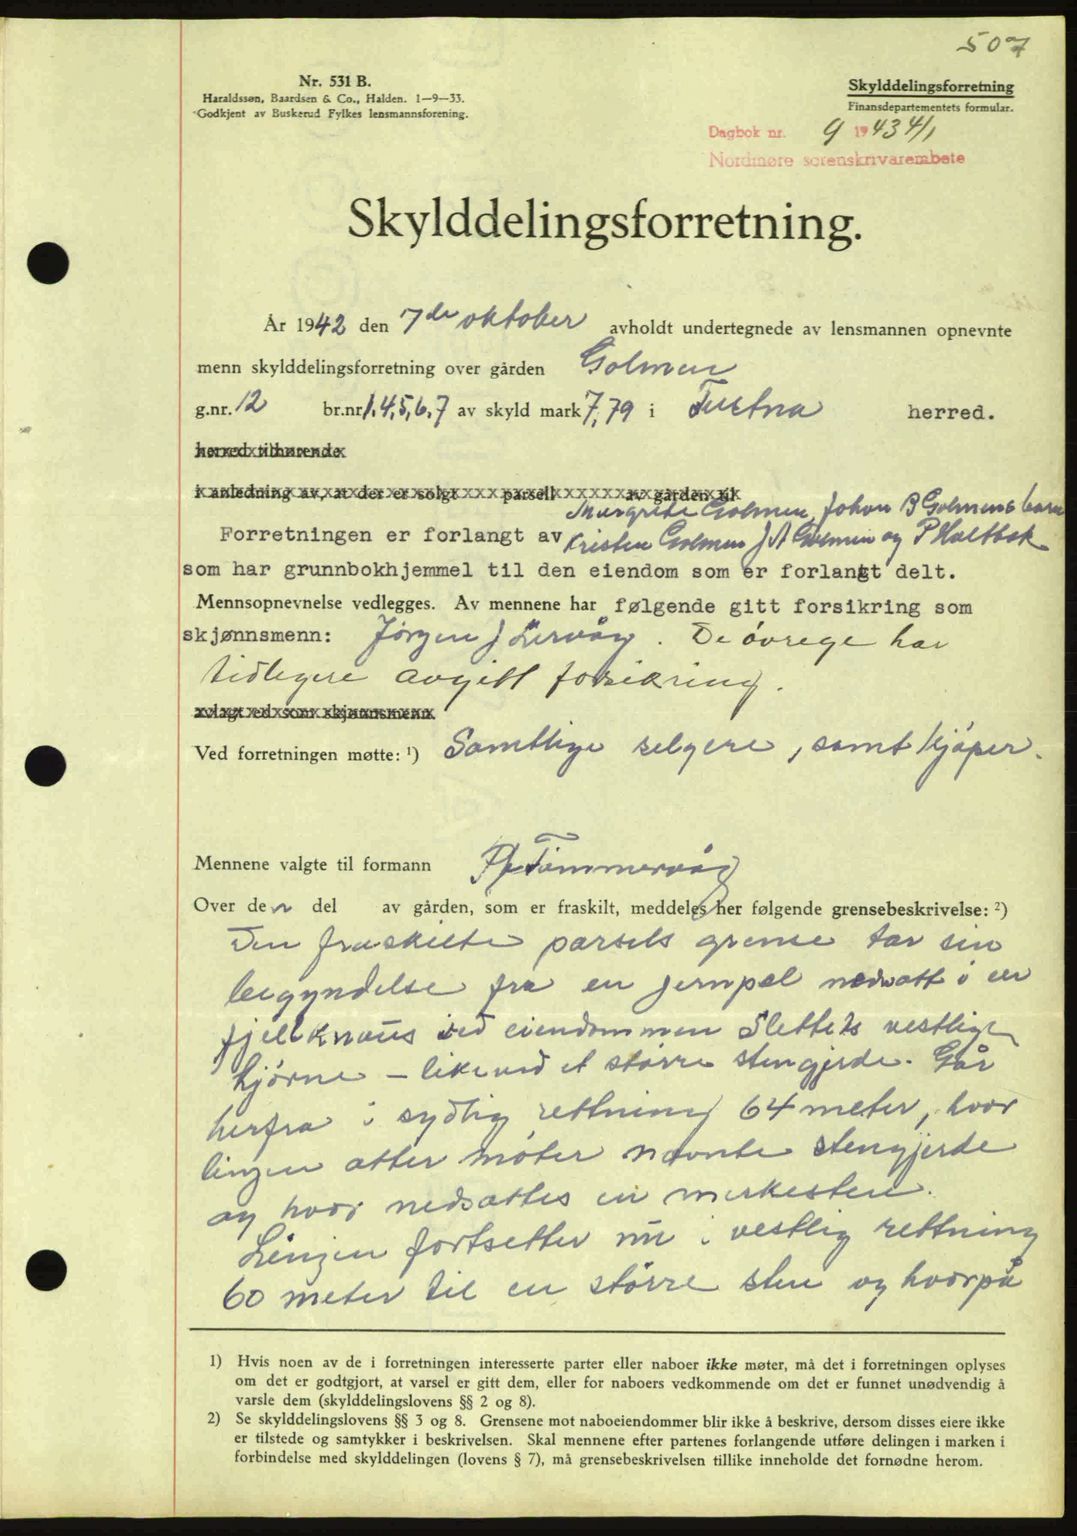 507
Nr. 531 B.
Haraldssøn, Baardsen & Co., Halden. 1—9—33.
Godkjent av Buskerud Fylkes lensmannsforening.
Skylddelingsforretning
Finansdepartementets formular.
Dagbok nr. 9 1943 4/1
Nordmøre sorenskrivarembete
Skylddelingsforretning.
År 1942 den 7de oktober avholdt undertegnede av lensmannen opnevnte
menn skylddelingsforretning over gården Golmen
g.nr. 12 br.nr 1,4,5,6,7 av skyld mark 7,79 i Tustna herred.
herred tilhørende
i anledning av, at der er solgt parsell av gården til
Margrete Golmen, Johan B Golmens barn
Forretningen er forlangt av Kristen Golmen J A Golmen og P Holtbak
som har grunnbokhjemmel til den eiendom som er forlangt delt.
Mennsopnevnelse vedlegges. Av mennene har følgende gitt forsikring som
skjønnsmenn: Jørgen J Lervåg. De övrege har
tidlegere avgitt forsikring.
avlagt ed som skjønnsmenn
Ved forretningen møtte: ¹) Samtlige selgere, samt kjöper.
Mennene valgte til formann Tömmervåg
Over den del av gården, som er fraskilt, meddeles her følgende grensebeskrivelse: ²)
Den fraskilte parsels grense tar sin
begyndelse fra en jernpæl nedsatt i en
fjellknaus ved eiendommen Slettets vestlige
hjörne – like ved et större stengjerde. Går
herfra i sydlig rettning 64 meter, hvor
linjen atter möter nævnte stengjerde
og hvor nedsattes en merkesten.
Linjen fortsetter nu i vestlig rettning
60 meter til en större sten og hvorpå
1) Hvis noen av de i forretningen interesserte parter eller naboer ikke møter, må det i forretningen oplyses
om det er godtgjort, at varsel er gitt dem, eller for naboers vedkommende om det er funnet unødvendig å
varsle dem (skylddelingslovens §§ 2 og 8).
2) Se skylddelingslovens §§ 3 og 8. Grensene mot naboeiendommer blir ikke å beskrive, dersom disses eiere ikke
er tilstede og samtykker i beskrivelsen. Skal mennene efter partenes forlangende utføre delingen i marken i
forbindelse med skylddelingen (lovens § 7), må grensebeskrivelsen tillike inneholde det fornødne herom.